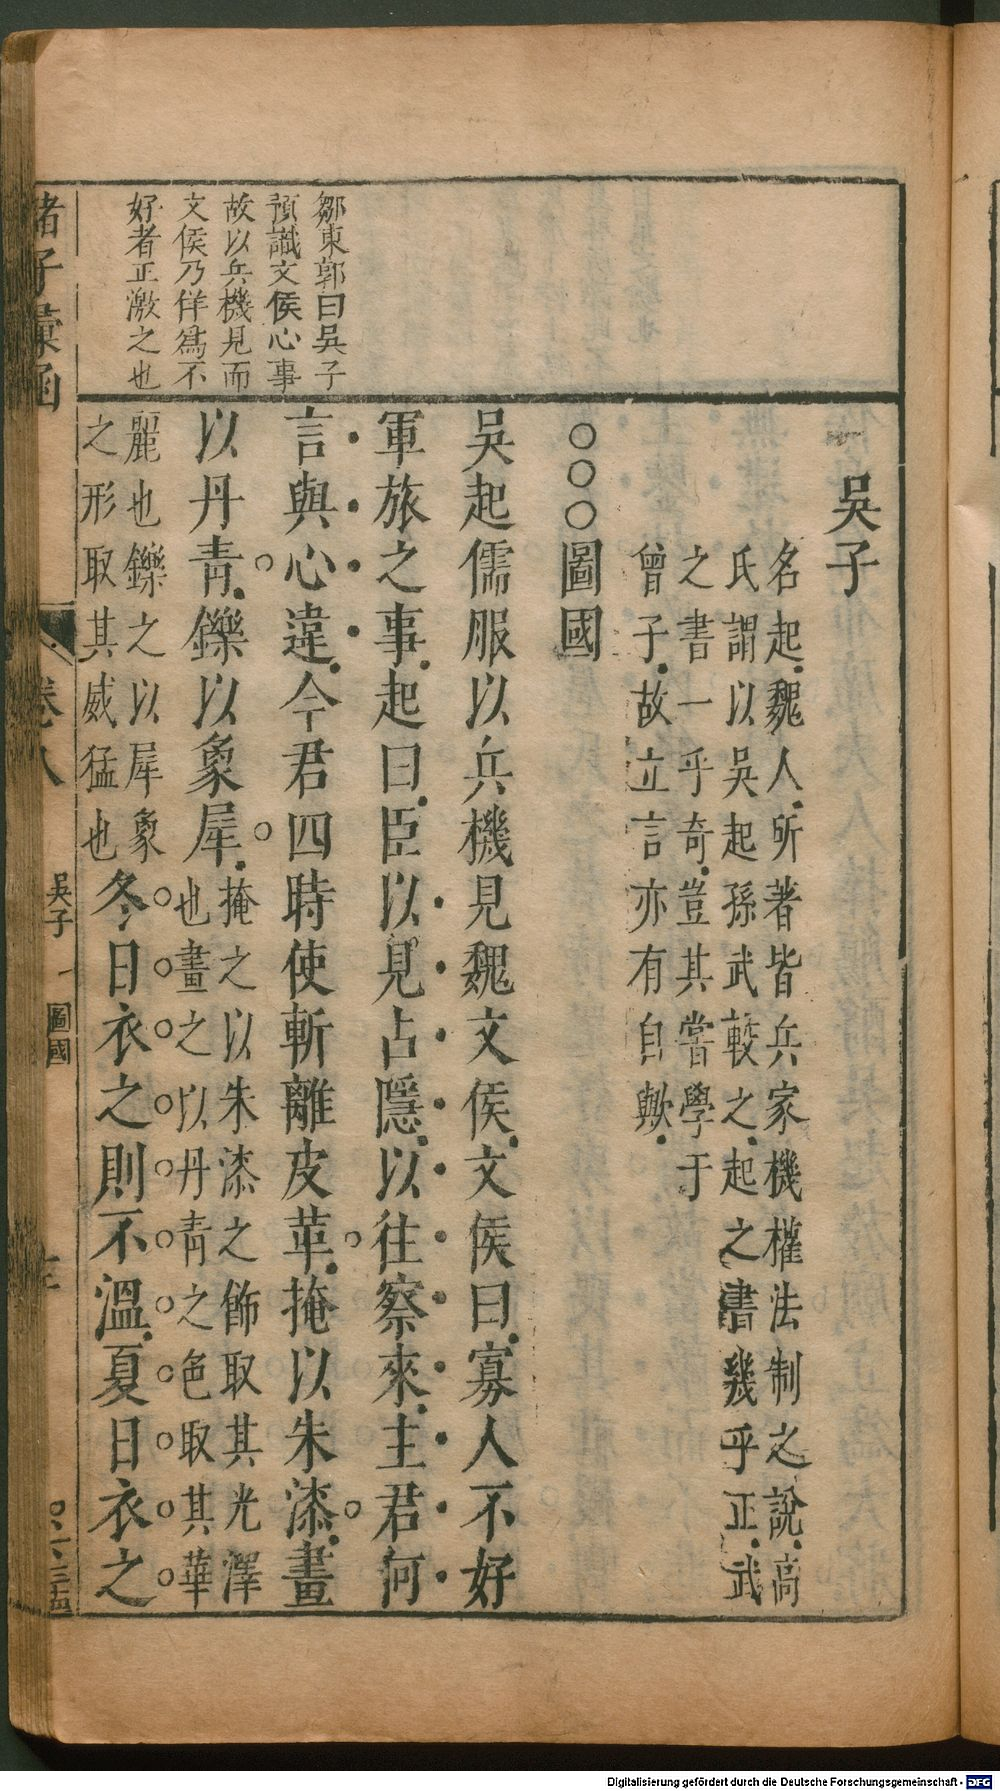 吳子
名起魏人所著皆兵家機權法制之說高
氏謂以吳起孫武較之起之書幾乎正武
之書一乎奇豈其嘗學于
曾子故立言亦有自歟
○○○圖國
吳起儒服以兵機見魏文侯文侯曰寡人不好
軍旅之事起曰臣以見占隱以往察來主君何
言與心違今君四時使斬離皮革掩以朱漆畫
以丹青鑠以象犀
掩之以朱漆之飾取其光澤
也畫之以丹青之色取其華
麗也鑠之以犀象
之形取其威猛也
冬日衣之則不溫夏日衣之
鄒東郭曰吳子
預識文侯心事
故以兵機見而
文侯乃佯為不
好者正激之也
諸子彙函
卷八
吳子
圖國
Digitalisierung gefördert durch die Deutsche Forschungsgemeinschaft - DFG